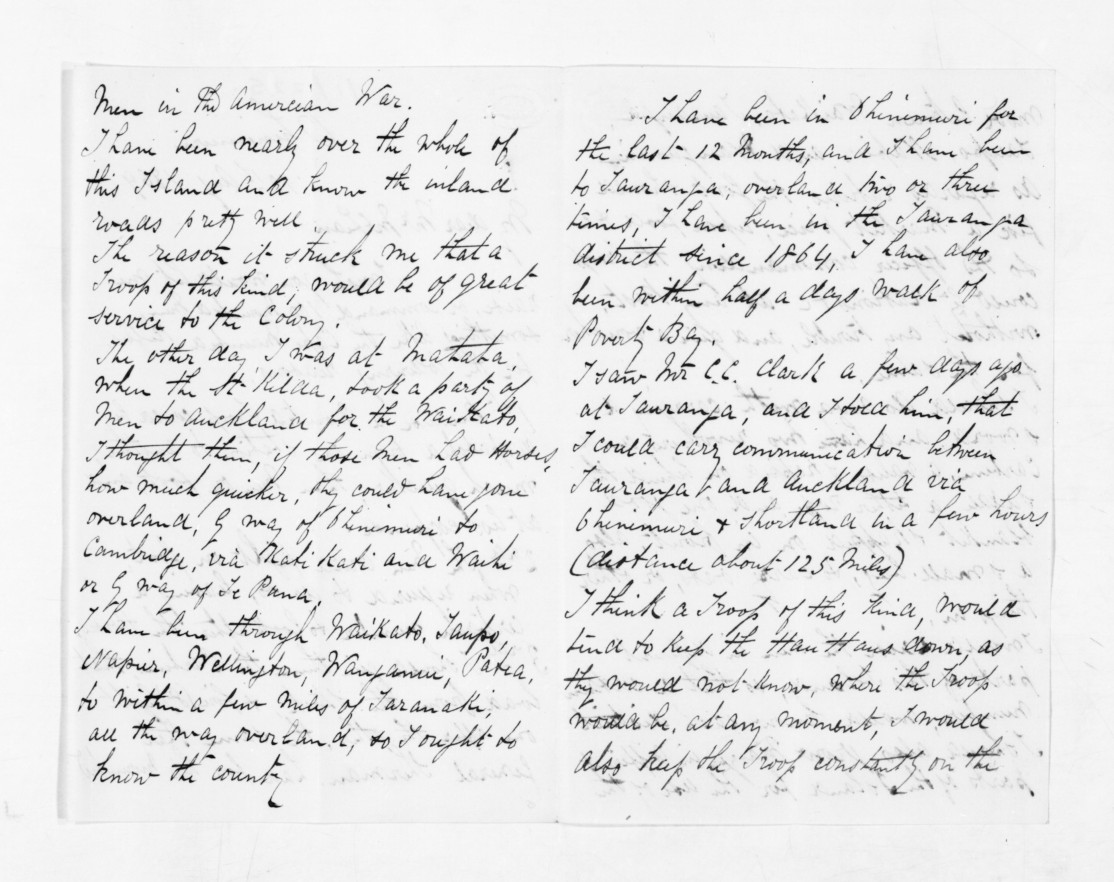 Men in the Amercian War.
I have been nearly over the whole of
this Island and know the inland
roads pretty well.
The reason it struck me that a
Troop of this kind, would be of great
service to the Colony.
The other day I was at Matata,
when the St Kilda, took a party of
Men to Auckland for the Waikato,
I thought then, if those Men had Horses,
how much quicker, they could have gone
overland, by way of Ohinimuri to
Cambridge, via Kati Kati and Waihi
or by way of Te Puna,
I have been through Waikato, Taupo,
Napier, Wellington, Wanganui, Patea,
to within a few miles of Taranaki,
all the way overland, so I ought to
know the county
I have been in Ohinimuri for
the last 12 Months, and I have been
to Tauranga, overland two or three
times, I have been in the Tauranga
district since 1864, I have also
been within half a days walk of
Poverty Bay.
I saw Mr C.C. Clark a few days ago
at Tauranga, and I told him, that
I could carry communication between
Tauranga and Auckland via
Ohinimuri & Shortland in a few hours
(distance about 125 Miles)
I think a Troop of this kind, would
tend to keep the Hau Haus down, as
they would not know, where the Troop
would be, at any moment, I would
also keep the Troop constantly on the